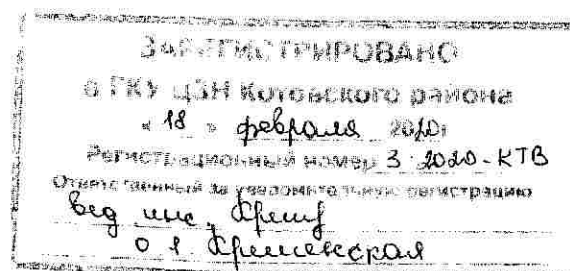 ЗАРЕГИСТРИРОВАНО
в ГКУ ЦЗН Котовского района
« 18 » февраля 2020г
Регистрационный номер 3-2020-КТВ
Ответственный за уведомительную регистрацию
вед инс.